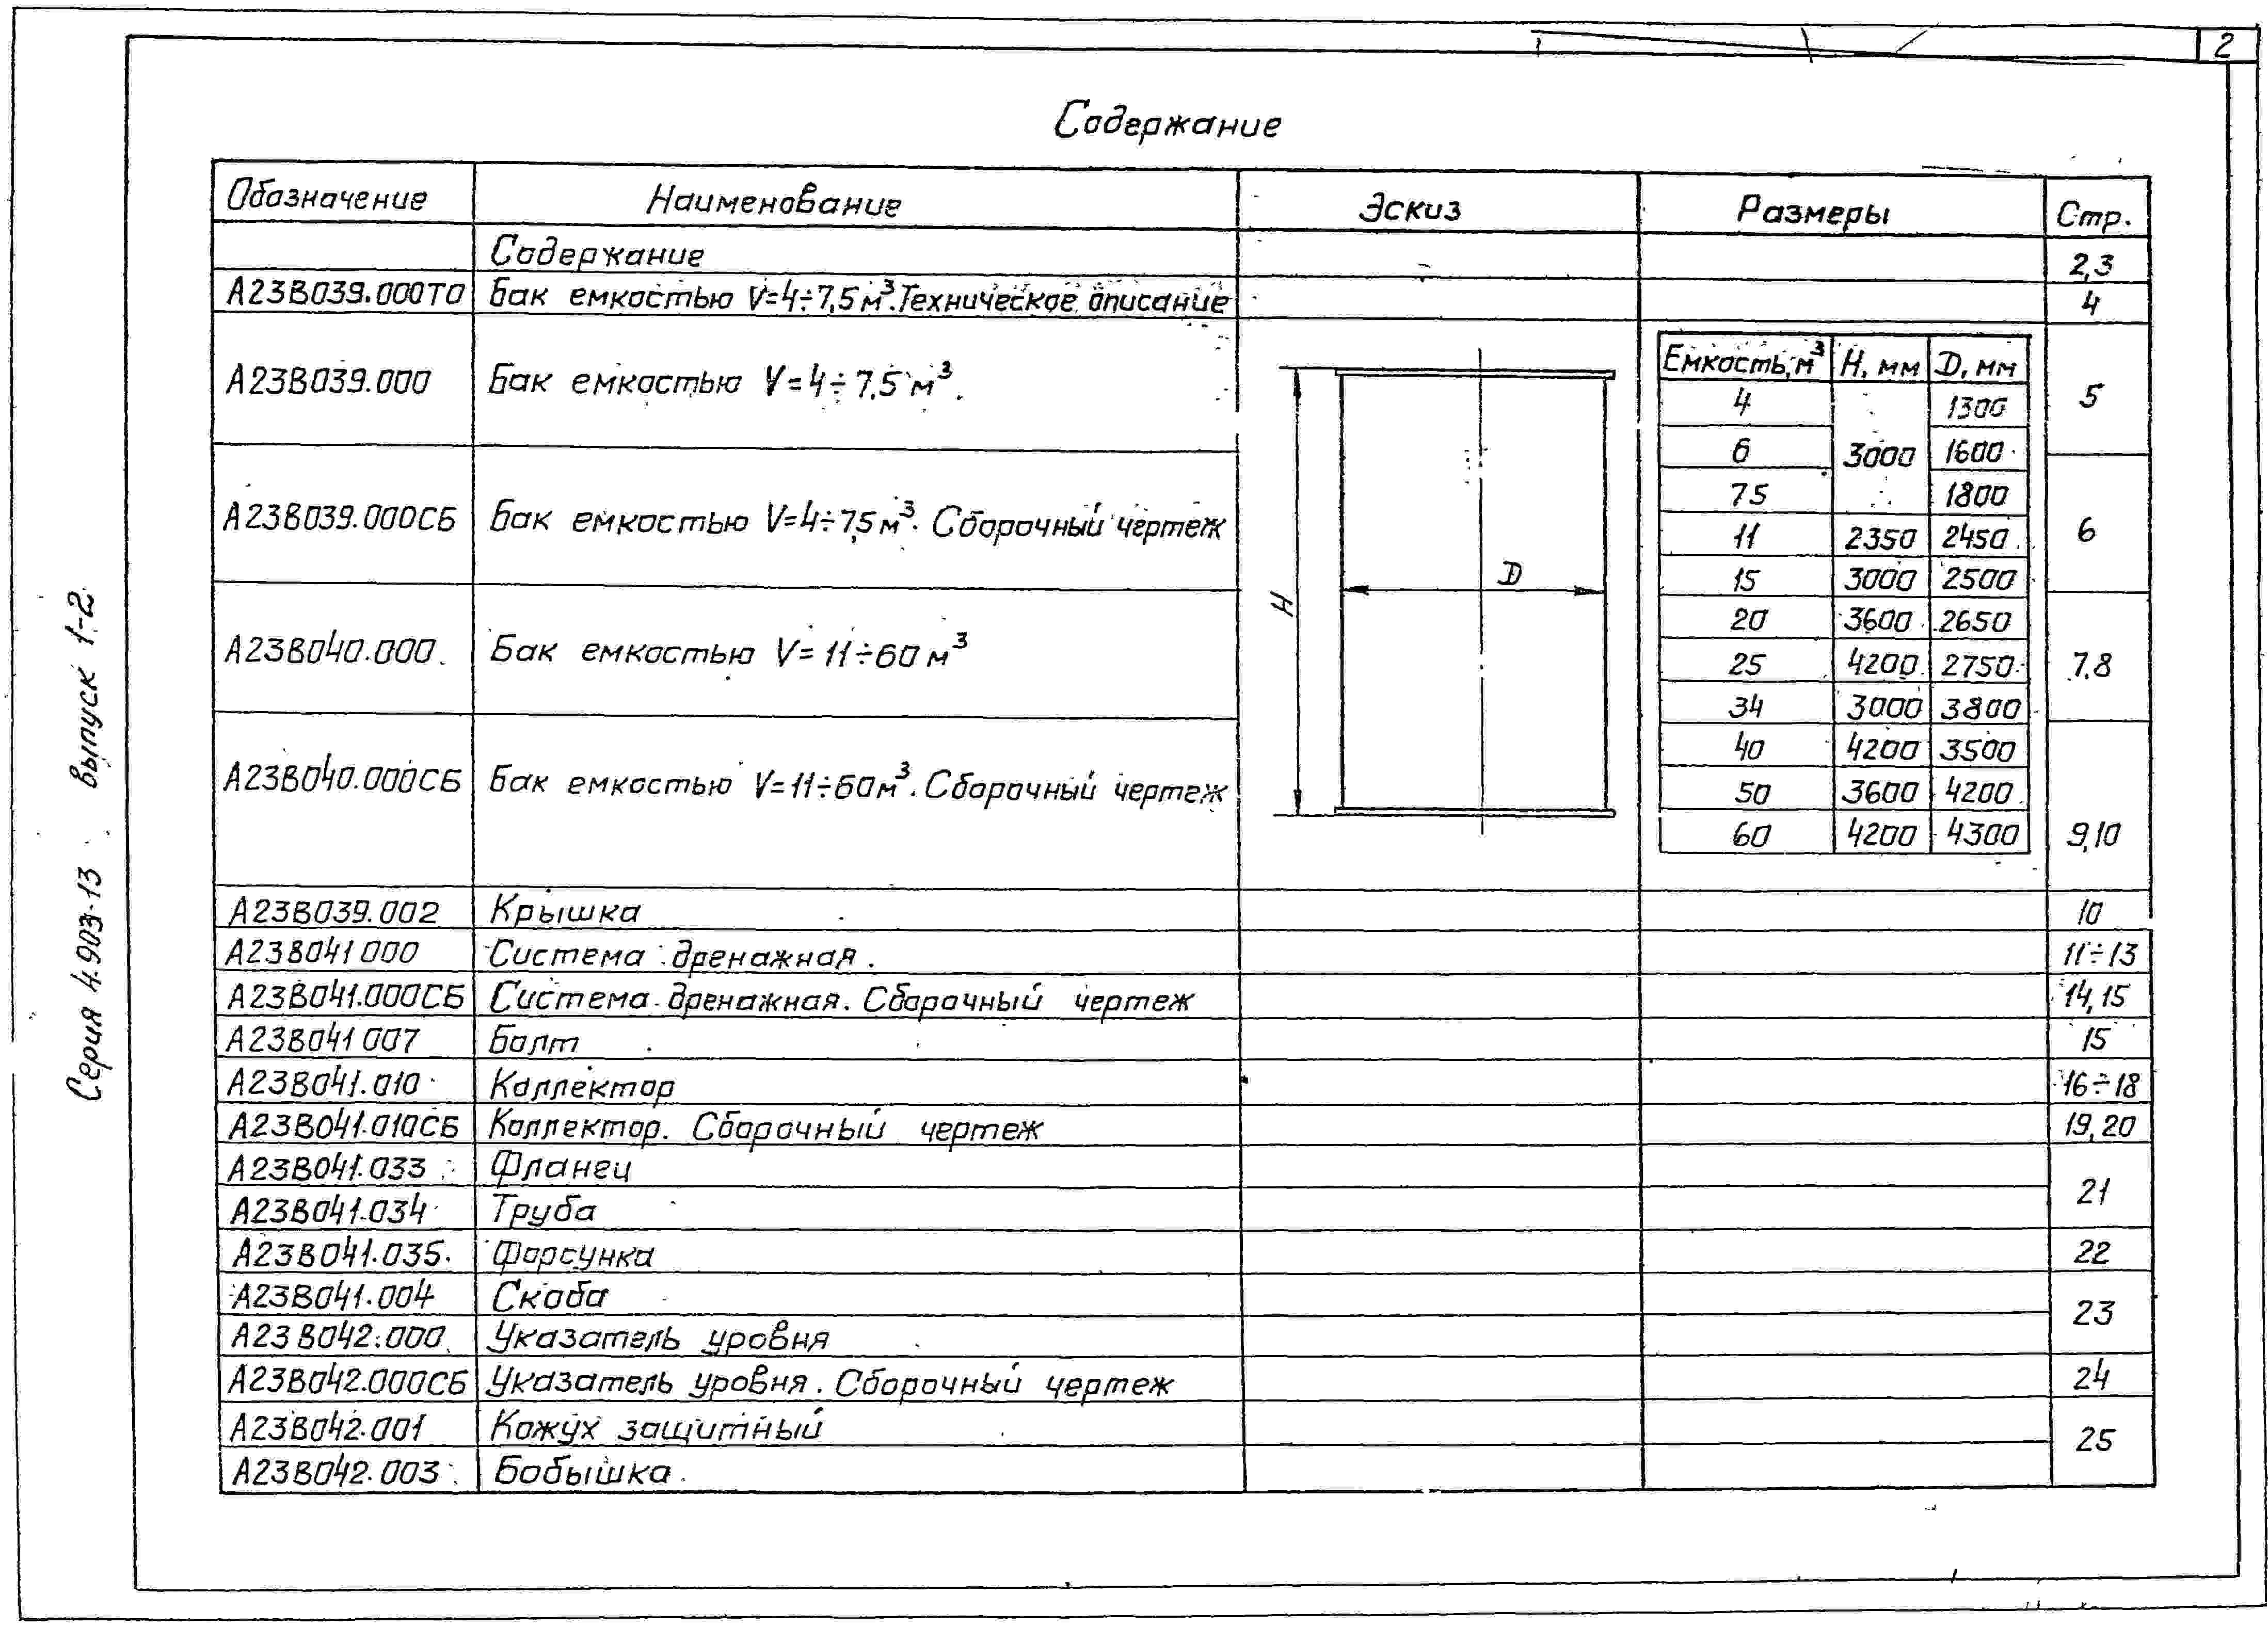 2
Содержание
Обозначение Наименование Эскиз Размеры Стр.
Содержание 2,3
А23В039.000ТО Бак емкостью V=4÷7,5м³.Техническое описание 4
А23В039.000 Бак емкостью V=4÷7,5м³. 5
А23В039.000СБ Бак емкостью V=4÷7,5м³. Сборочный чертеж 6
А23В040.000. Бак емкостью V=11÷60м³ 7,8
А23В040.000СБ Бак емкостью V=11÷60м³. Сборочный чертеж 9,10
H
D
Емкость,м³ Н, мм D, мм
4 3000 1300
6 1600
75 1800
11 2350 2450
15 3000 2500
20 3600 2650
25 4200 2750
34 3000 3800
40 4200 3500
50 3600 4200
60 4200 4300
А23В039.002 Крышка 10
А23В041 000 Система дренажная. 11÷13
А23В041.000СБ Система дренажная. Сборочный чертеж 14,15
А23В041 007 Болт 15
А23В041.010 Коллектор 16÷18
А23В041.010СБ Коллектор. Сборочный чертеж 19,20
А23В041.033 Фланец 21
А23В041.034 Труба
А23В041.035. Форсунка 22
А23В041.004 Скоба 23
А23В042.000 Указатель уровня
А23В042.000СБ Указатель уровня. Сборочный чертеж 24
А23В042.001 Кожух защитный 25
А23В042.003 Бобышка.
Серия 4.903-13 выпуск 1-2